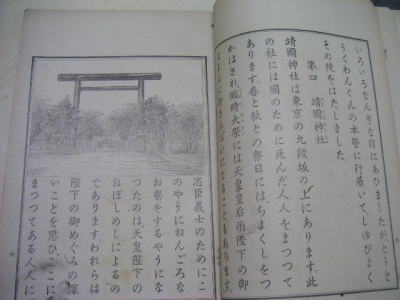 いろいろなんぎな目にあひましたがとうと
うくわんぐんの本營に行着いて、しゆびよく
その使をはたしました。
第四 靖國神社
靖國神社は東京の九段坂の上にあります。此
の社には國のために死んだ人人をまつつて
あります。春と秋との祭日には、ちよくしをつ
かはされ、臨時大祭には天皇皇后兩陛下の御
になることもあります。
忠臣義士のためにこ
のやうにねんごろな
お祭をするやうにな
つたのは天皇陛下の
おぼしめしによるの
でありますわれらは
陛下の御めぐみの深
いことを思ひ、ここに
まつつてある人人に